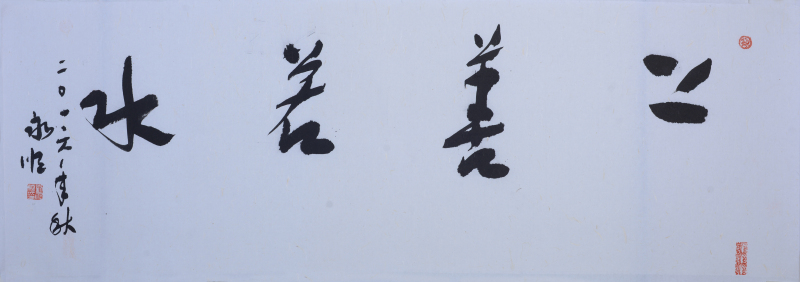 上善若水
二〇一六年秋
永